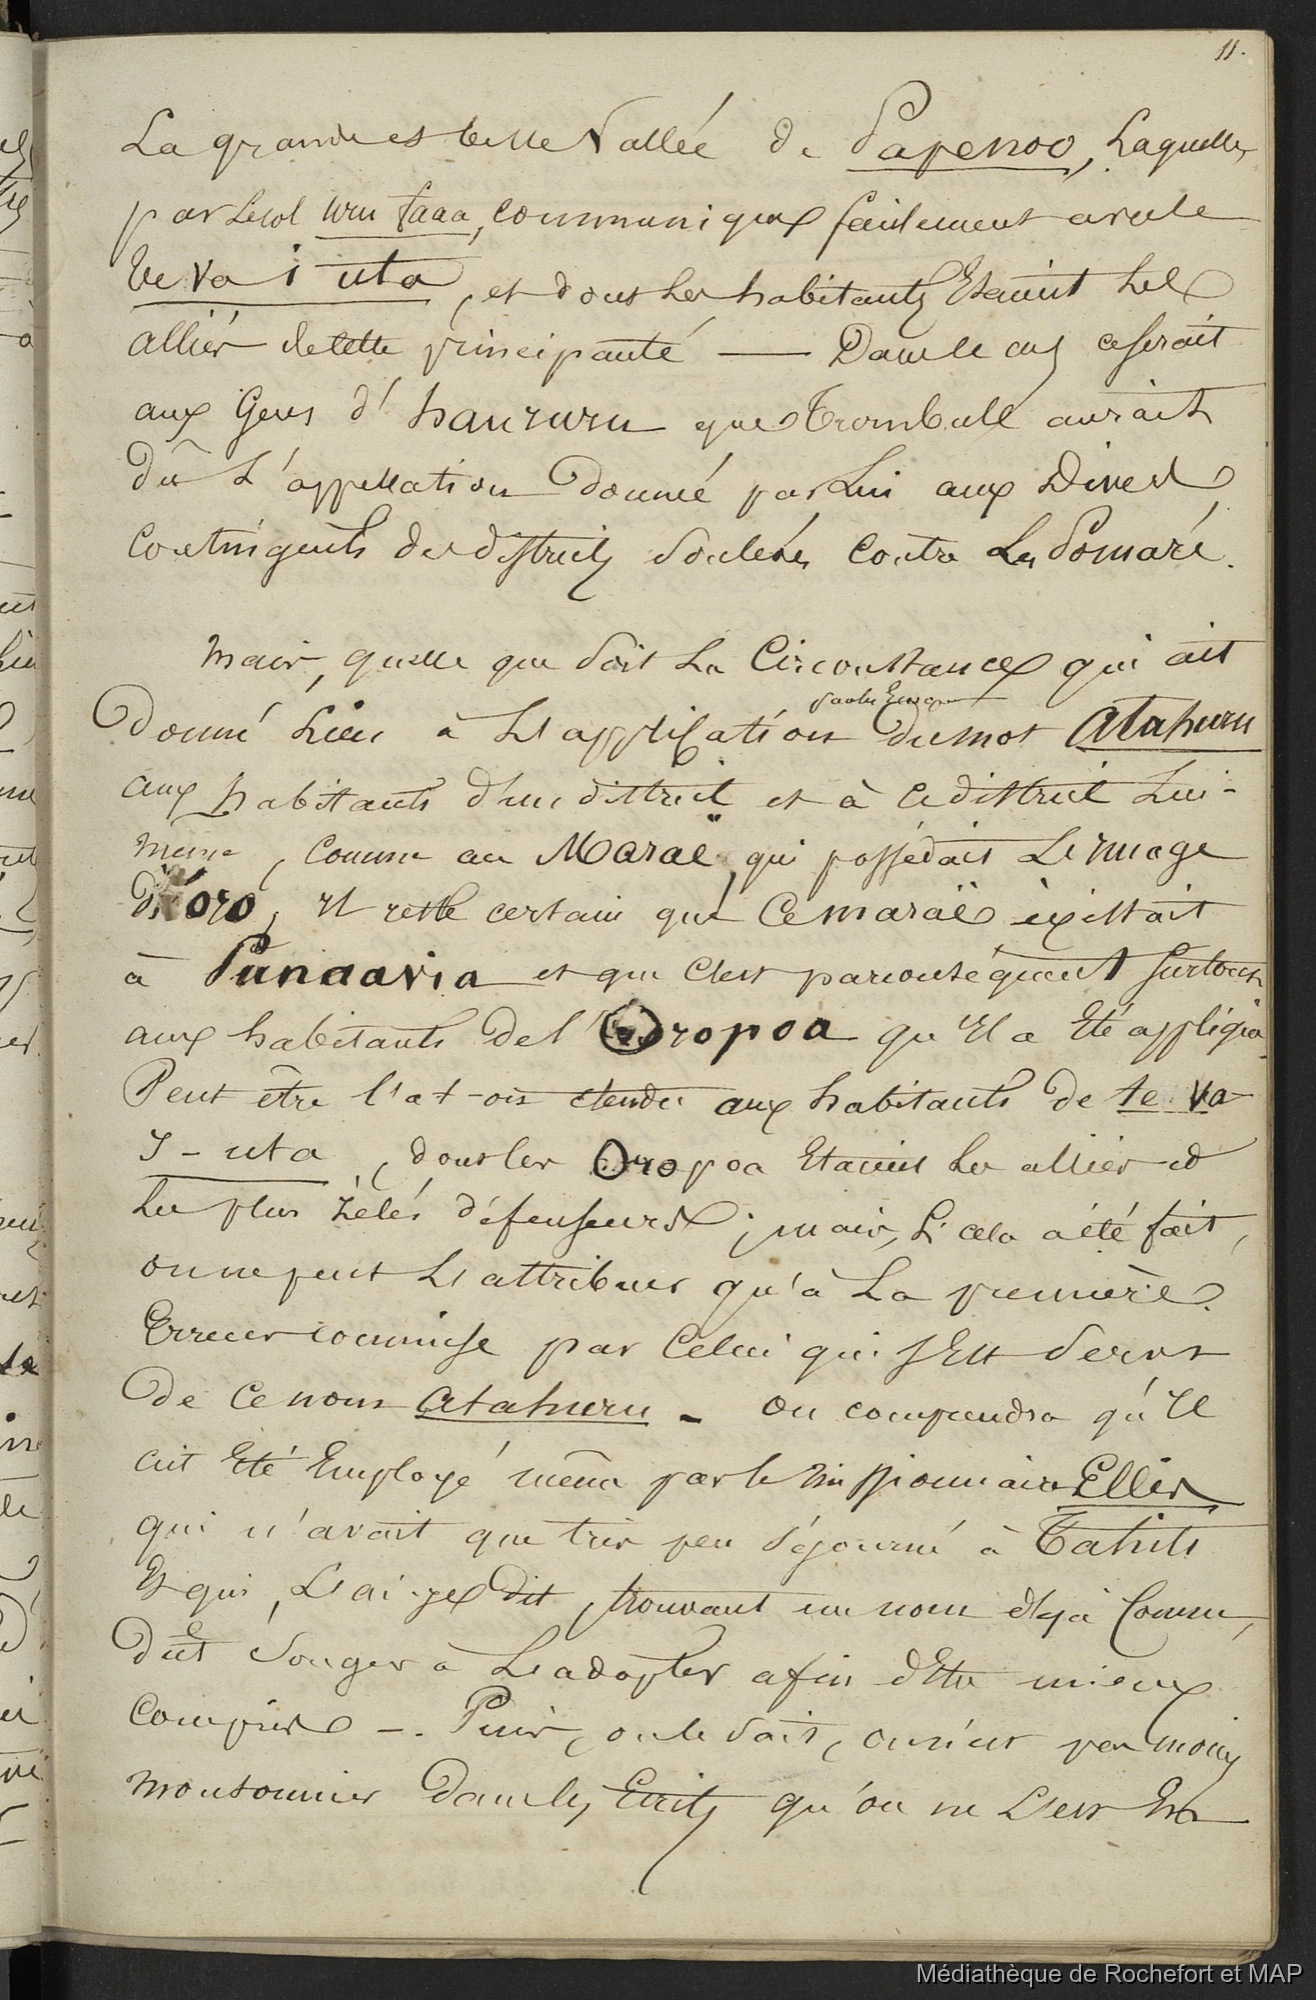 11.
La grande et belle Vallée de Papenoo, Laquelle,
par le col uru faaa, communique facilement avec le
Teva i uta, et dont les habitants Etaient les
alliés de cette principauté — Dans ce cas ce serait
aux Gens d' haururu que Trombull aurait
dû L'appellation donnée par Lui aux Divers
Contingents des districts soulevés Contre Les Pomaré.
Mais, quelle que soit La Circonstance qui ait
par les Europ
Donné Lieu à L'application du mot Atahuru
aux habitants d'un district et à ce district Lui-
même, Comme au Maraë qui possédait L'image
d'oro, il reste certain que Ce maraë existait
à Punaavia et que c'est par conséquent surtout
aux habitants de l'Oropoa qu'Il a Eté appliqué
Peut être l'a t-on étendu aux habitants de te va
I-uta, dont les Oropoa Etaient les alliés et
les plus zélés défenseurs ; mais, si cela a été fait,
on ne peut L'attribuer qu'à La première
Erreur commise par Celui qui s'Est servi
de Ce nom Atahuru - on comprendra qu'Il
ait Eté Employé même par le missionnaire Ellis
qui n'avait que très peu séjourné à Tahiti
Et qui, L'ai-je dit, trouvant un nom déjà Connu,
dût songer à L'adopter afin d'Etre mieux
Compris -. Puis, on le sait, on n'est pas moins
moutonnier dans les Ecrits qu'on ne L'est En
Médiathèque de Rochefort et MAP